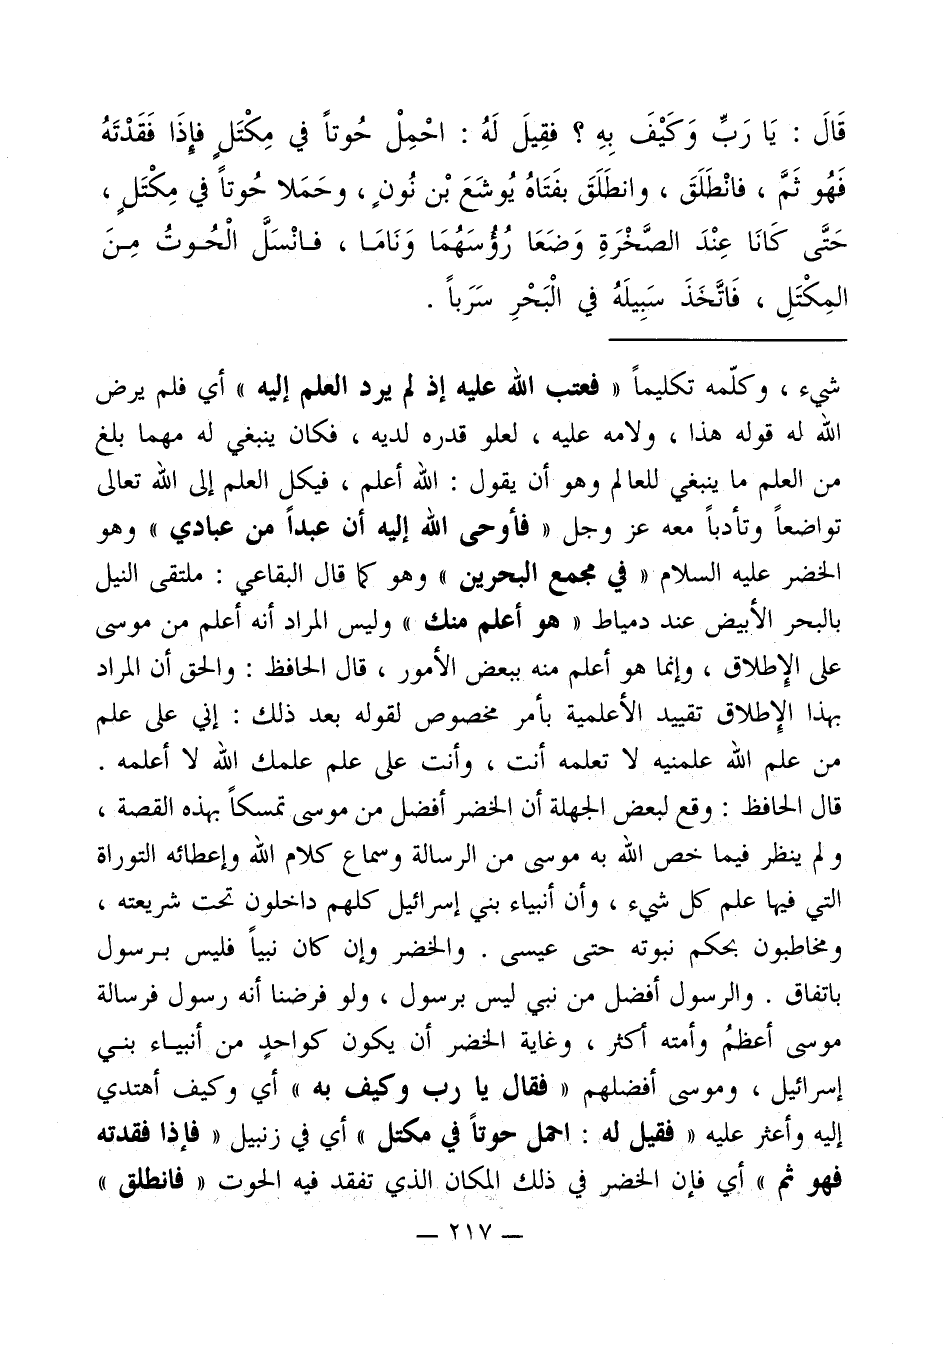 قَالَ : يَا رَبِّ وَكَيْفَ بِهِ ؟ فقِيلَ لَهُ : احْمِلْ حُوتاً في مِكْتَلٍ فإِذَا فَقَدْتَهُ
فَهُو ثَمَّ ، فانْطَلَقَ ، وانطَلَقَ بفَتَاهُ يُوشَعَ بْن نُونٍ ، وحَمَلا حُوتاً في مِكْتَلٍ ،
حَتَّى كَانَا عِنْدَ الصَّخْرَةِ وَضَعَا رُؤُسَهُمَا وَنَامَا ، فانْسَلَّ الْحُوتُ مِنَ
المِكْتَلِ ، فَاتَّخَذَ سَبِيلَهُ في الْبَحْرِ سَرَباً .
شيء ، وكلّمه تكليماً « فعتب الله عليه إذ لم يرد العلم إليه » أي فلم يرض
الله له قوله هذا ، ولامه عليه ، لعلو قدره لديه ، فكان ينبغي له مهما بلغ
من العلم ما ينبغي للعالم وهو أن يقول : الله أعلم ، فيكل العلم إلى الله تعالى
تواضعاً وتأدباً معه عز وجل « فأوحى الله إليه أن عبداً من عبادي » وهو
الخضر عليه السلام « في مجمع البحرين » وهو كما قال البقاعي : ملتقى النيل
بالبحر الأبيض عند دمياط « هو أعلم منك » وليس المراد أنه أعلم من موسى
على الإِطلاق ، وإنما هو أعلم منه ببعض الأمور ، قال الحافظ : والحق أن المراد
بهذا الإِطلاق تقييد الأعلمية بأمر مخصوص لقوله بعد ذلك : إني على علم
من علم الله علمنيه لا تعلمه أنت ، وأنت على علم علمك الله لا أعلمه .
قال الحافظ : وقع لبعض الجهلة أن الخضر أفضل من موسى تمسكاً بهذه القصة ،
ولم ينظر فيما خص الله به موسى من الرسالة وسماع كلام الله وإعطائه التوراة
التي فيها علم كل شيء ، وأن أنبياء بني إسرائيل كلهم داخلون تحت شريعته ،
ومخاطبون بحكم نبوته حتى عيسى . والخضر وإن كان نبياً فليس برسول
باتفاق . والرسول أفضل من نبي ليس برسول ، ولو فرضنا أنه رسول فرسالة
موسى أعظمُ وأمته أكثر ، وغاية الخضر أن يكون كواحدٍ من أنبياء بني
إسرائيل ، وموسى أفضلهم « فقال يا رب وكيف به » أي وكيف أهتدي
إليه وأعثر عليه « فقيل له : احمل حوتاً في مكتل » أي في زنبيل « فإذا فقدته
فهو ثم » أي فإن الخضر في ذلك المكان الذي تفقد فيه الحوت « فانطلق »
— ٢١٧ —